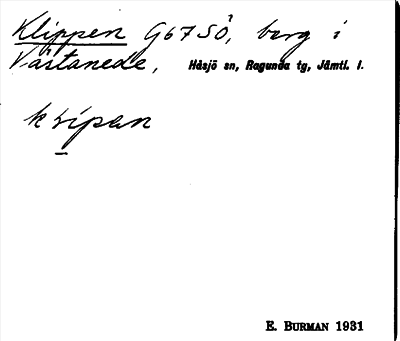 Klippen G67SÖ, berg i
Västanede, Håsjö sn, Ragunda tg, Jämtl. l.
klipan
E. BURMAN 1931